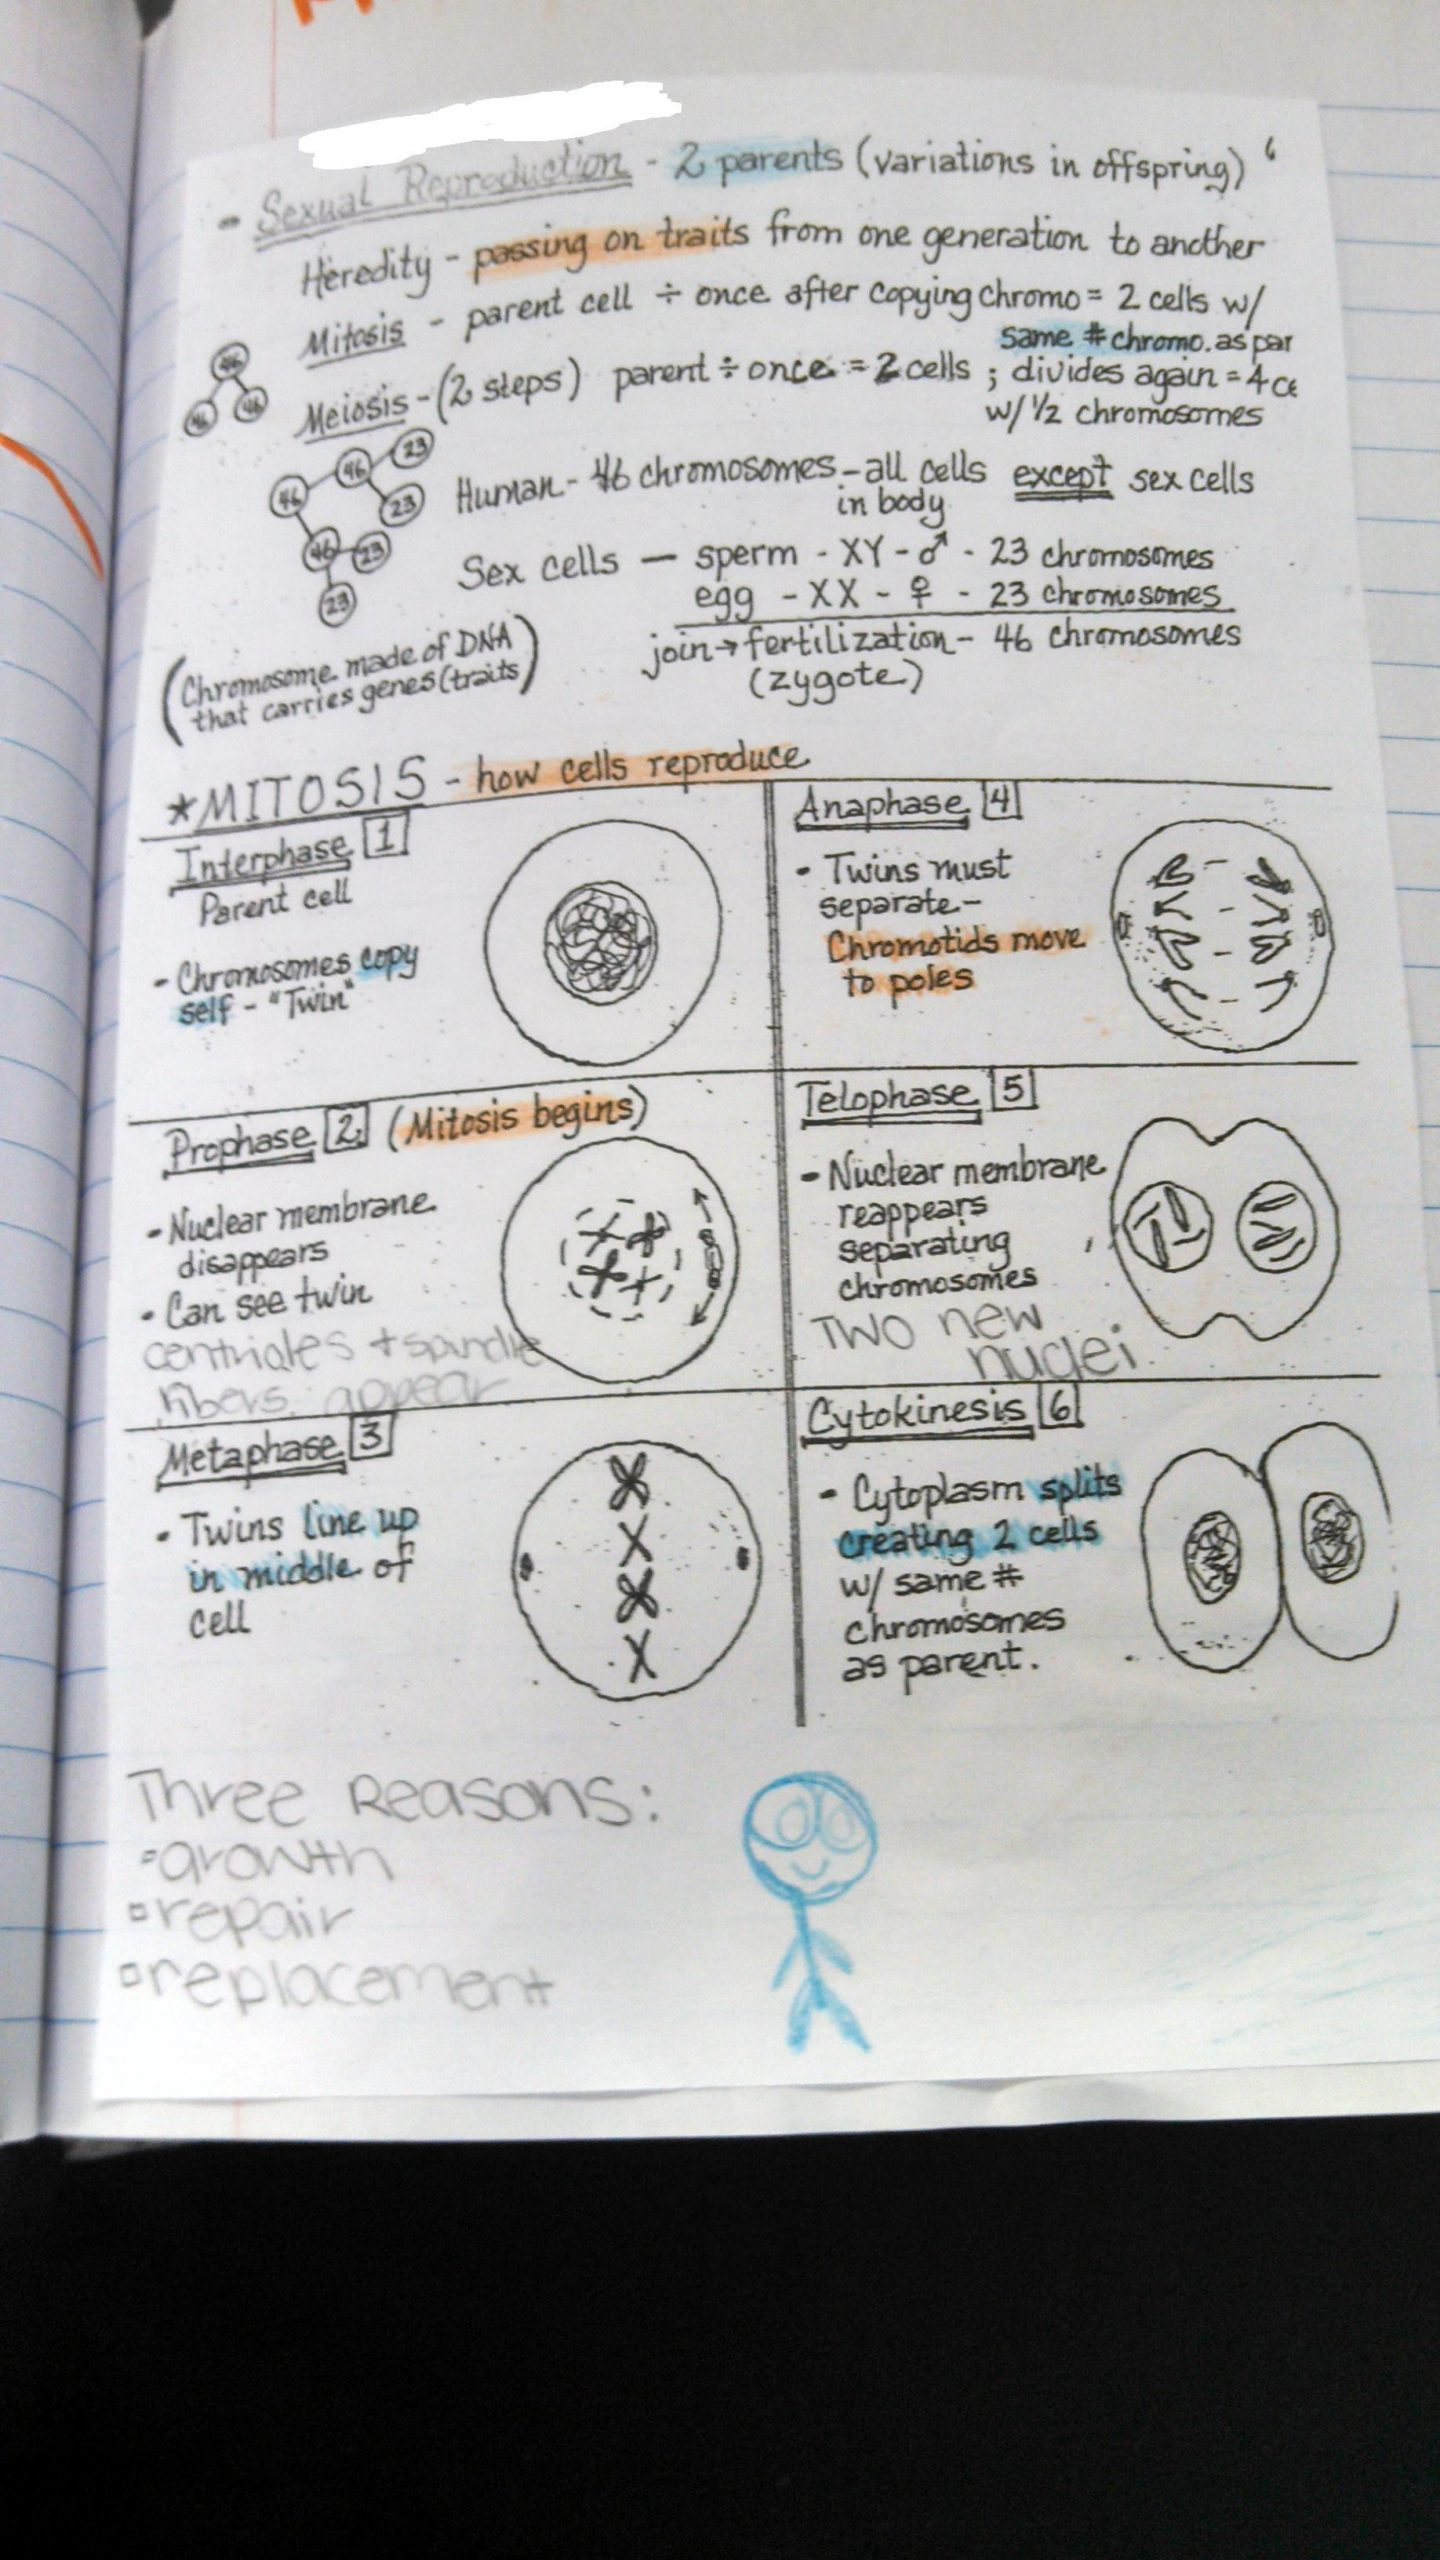 - Sexual Reproduction - 2 parents (variations in offspring)
Heredity - passing on traits from one generation to another
Mitosis - parent cell ÷ once after copying chromo = 2 cells w/
same # chromo. as par
46
46 46
Meiosis - (2 steps) parent ÷ once = 2 cells ; divides again = 4 ce
w/ 1/2 chromosomes
46 46 23
23
46 23
23
Human - 46 chromosomes - all cells except sex cells
in body
Sex cells — sperm - XY - ♂ - 23 chromosomes
egg - XX - ♀ - 23 chromosomes
join → fertilization - 46 chromosomes
(zygote)
(Chromosome made of DNA
that carries genes (traits)
*MITOSIS - how cells reproduce
Interphase 1
Parent cell
- Chromosomes copy
self - "Twin"
Prophase 2 (Mitosis begins)
- Nuclear membrane
disappears
• Can see twin
centrioles + spindle
fibers appear
Metaphase 3
• Twins line up
in middle of
cell
Anaphase 4
• Twins must
separate -
Chromotids move
to poles
Telophase 5
- Nuclear membrane
reappears
separating
chromosomes
Two new
nuclei
Cytokinesis 6
- Cytoplasm splits
creating 2 cells
w/ same #
chromosomes
as parent.
Three Reasons:
▫growth
▫repair
▫replacement